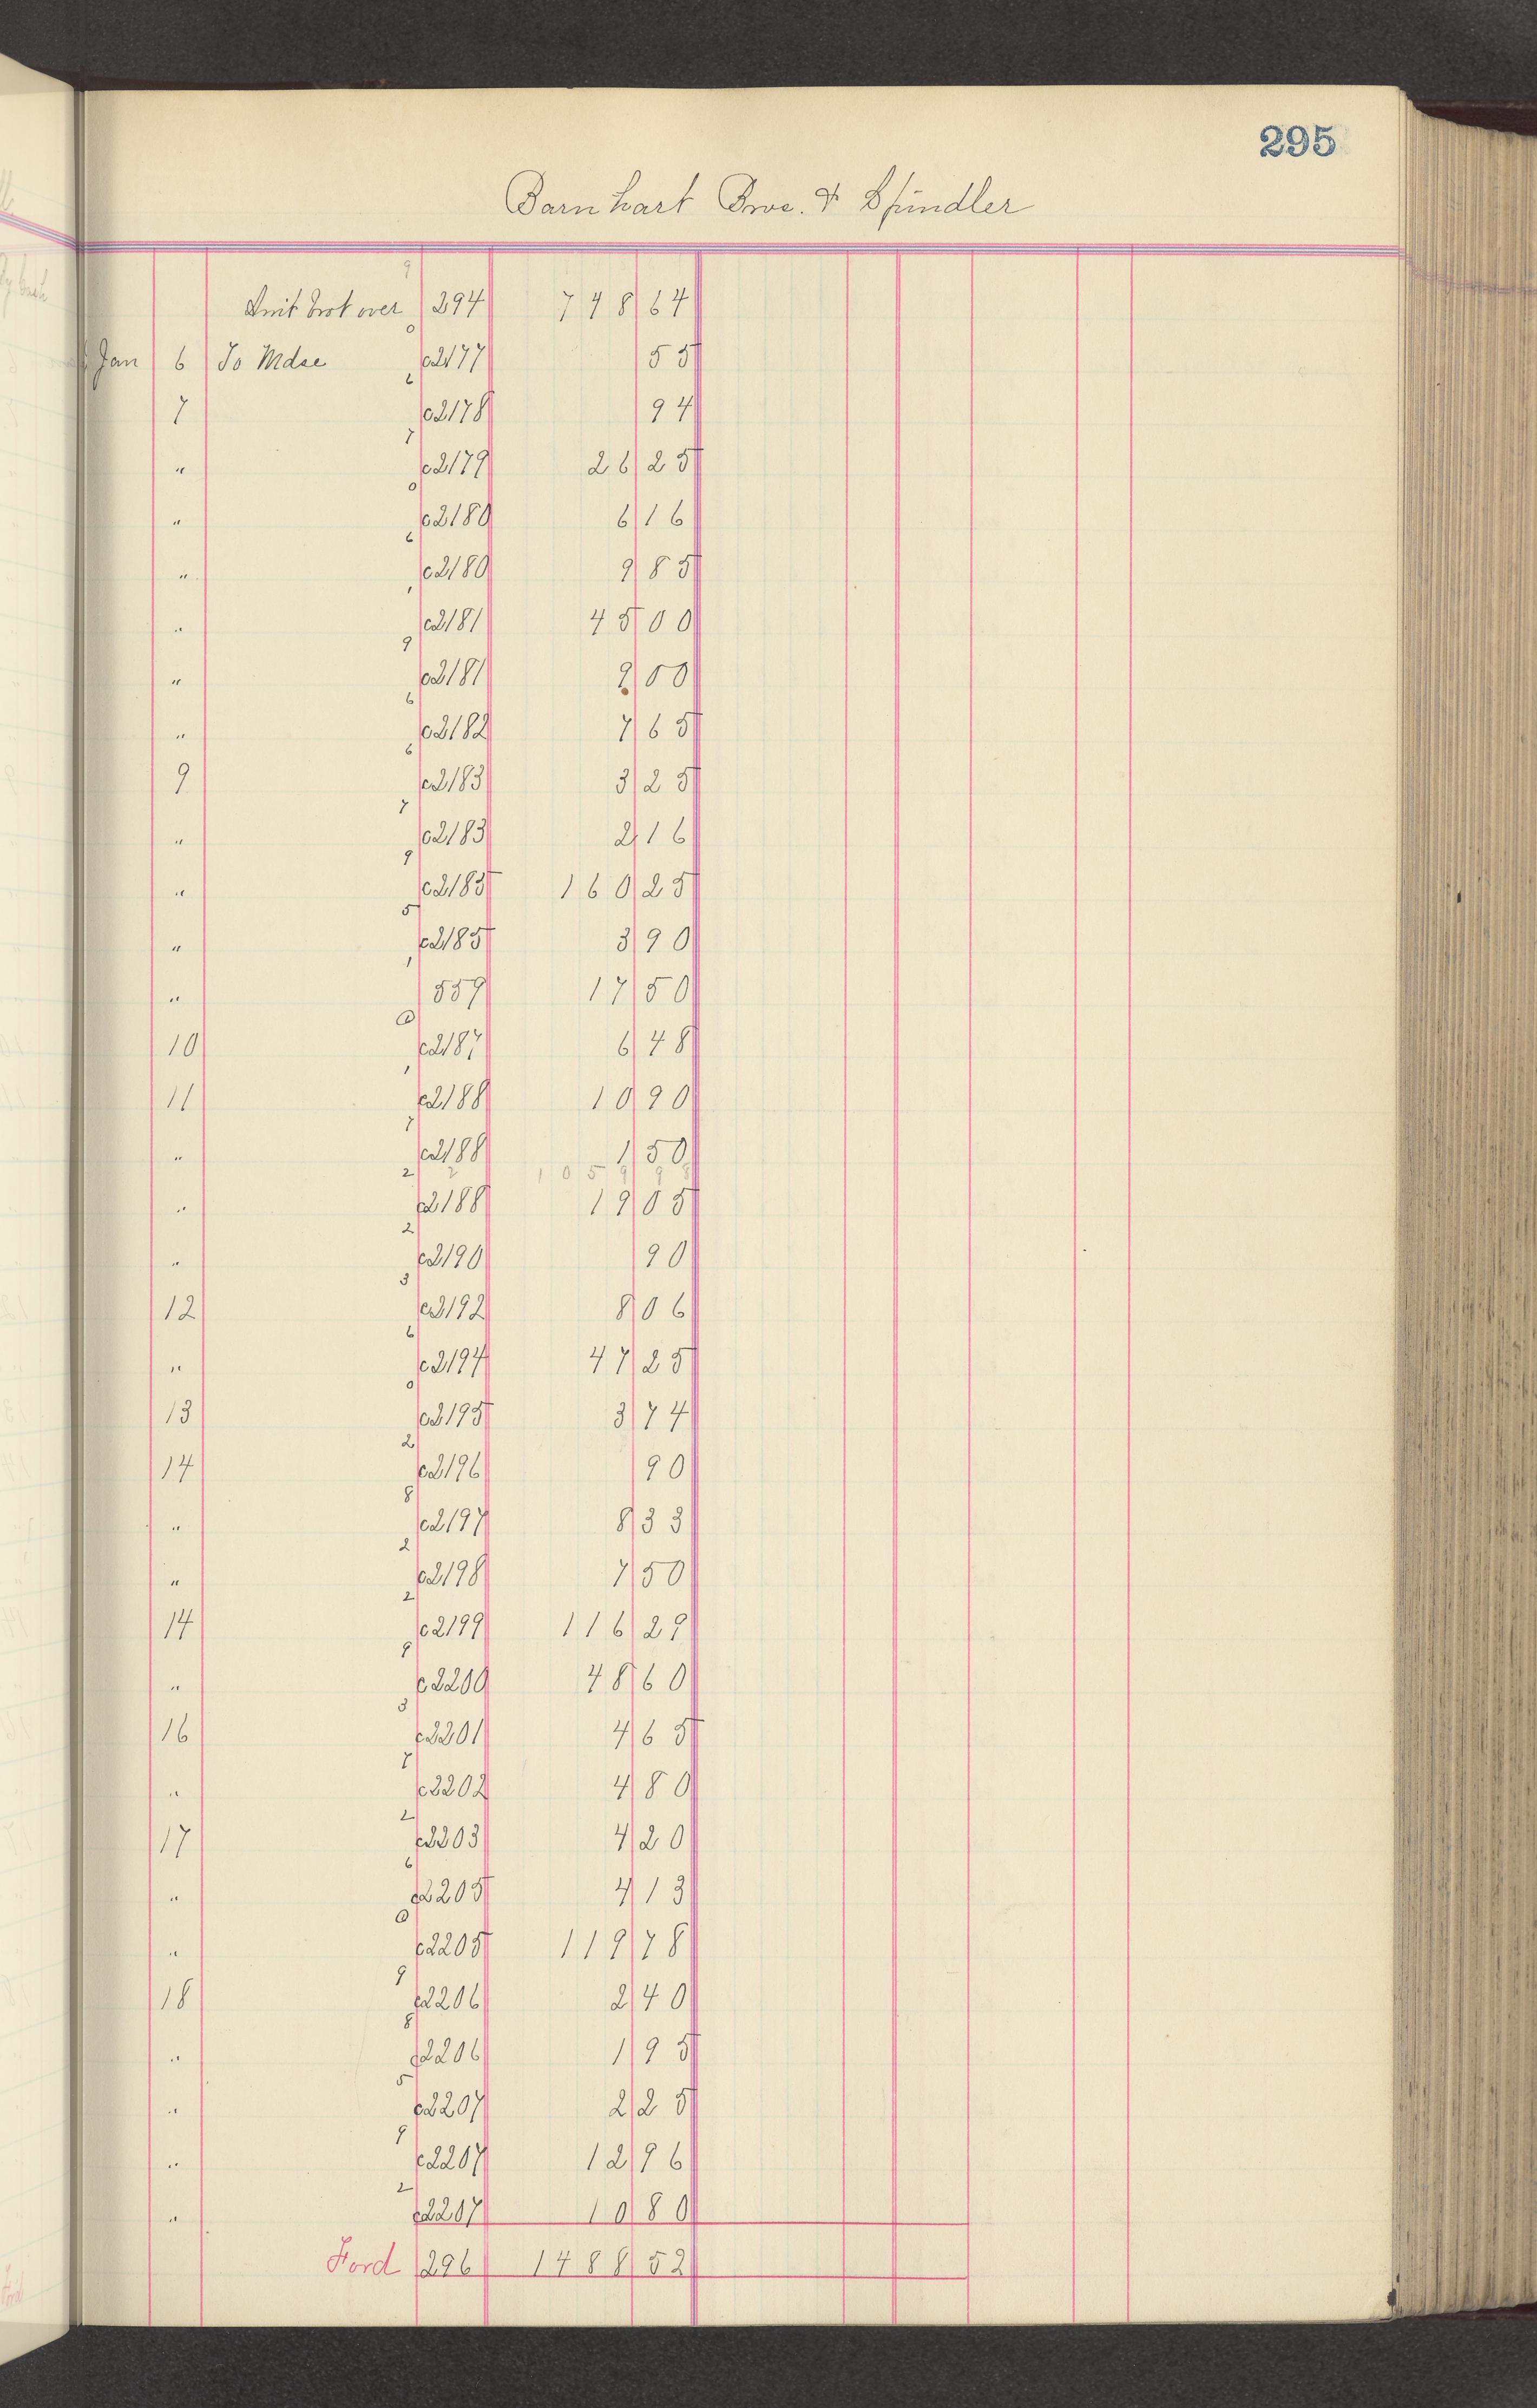 295
Barnhart Bros. & Spindler
9
Amt brot over 294 748 64
0
Jan 6 To Mdse c2177 55
6
7 c2178 94
7
" c2179 26 25
0
" c2180 6 16
6
" c2180 9 85
1
" c2181 45 00
9
" c2181 9 00
6
" c2182 7 65
6
9 c2183 3 25
7
" c2183 2 16
9
" c2185 160 25
5
" c2185 3 90
1
" 559 17 50
0
10 c2187 6 48
1
11 c2188 10 90
7
" c2188 1 50
2 2 1059 98
" c2188 19 05
2
" c2190 90
3
12 c2192 8 06
6
" c2194 47 25
0
13 c2195 3 74
2
14 c2196 90
8
" c2197 8 33
2
" c2198 7 50
2
14 c2199 116 29
9
" c2200 48 60
3
16 c2201 4 65
7
" c2202 4 80
2
17 c2203 4 20
6
" c2205 4 13
0
" c2205 119 78
9
18 c2206 2 40
8
" c2206 1 95
5
" c2207 2 25
9
" c2207 12 96
2
" c2207 10 80
Ford 296 1488 52